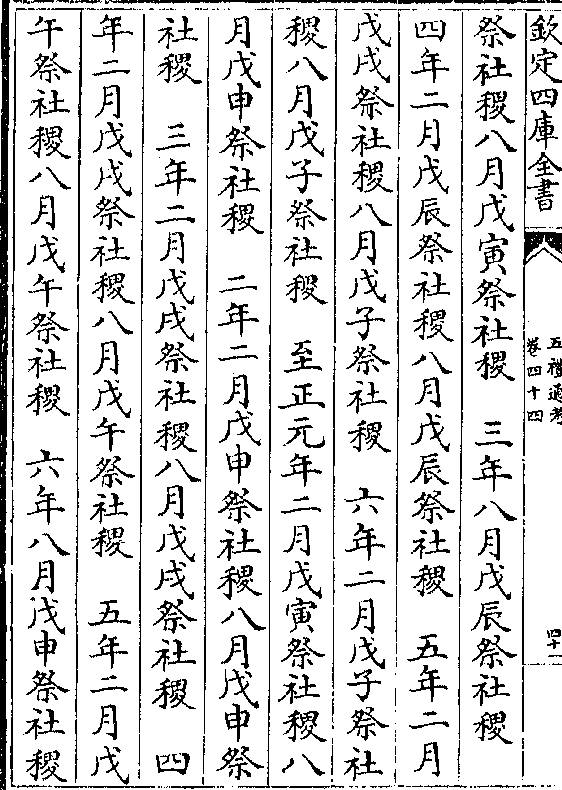 欽定四庫全書
五禮通考
卷四十四
四十一
祭社稷八月戊寅祭社稷　三年八月戊辰祭社稷
四年二月戊辰祭社稷八月戊辰祭社稷　五年二月
戊戌祭社稷八月戊子祭社稷　六年二月戊子祭社
稷八月戊子祭社稷　至正元年二月戊寅祭社稷八
月戊申祭社稷　二年二月戊申祭社稷八月戊申祭
社稷　三年二月戊戌祭社稷八月戊戌祭社稷　四
年二月戊戌祭社稷八月戊午祭社稷　五年二月戊
午祭社稷八月戊午祭社稷　六年八月戊申祭社稷